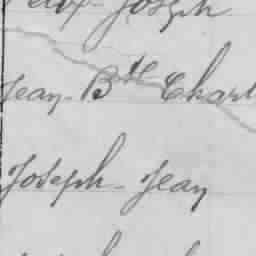 Felix-Joseph
Jean-Bte Charl
Joseph-Jean